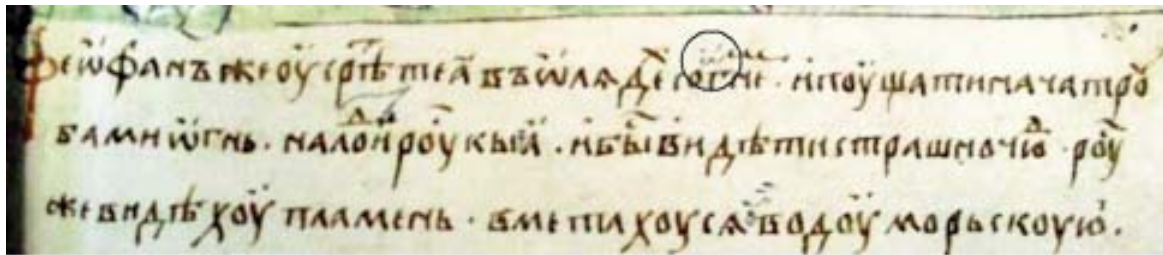 феѡфанъ же оусрѣте ѧ въ ѡлѧдеⷯ с огнеⷨ · и поущати нача троу
бами ѡгнь · на лоⷣи роукыꙗ · и быⷭ видѣти страшно чюⷣ · роуⷭ
же видѣхоу пламень · вметахоусѧ в водоу морьскоую ·